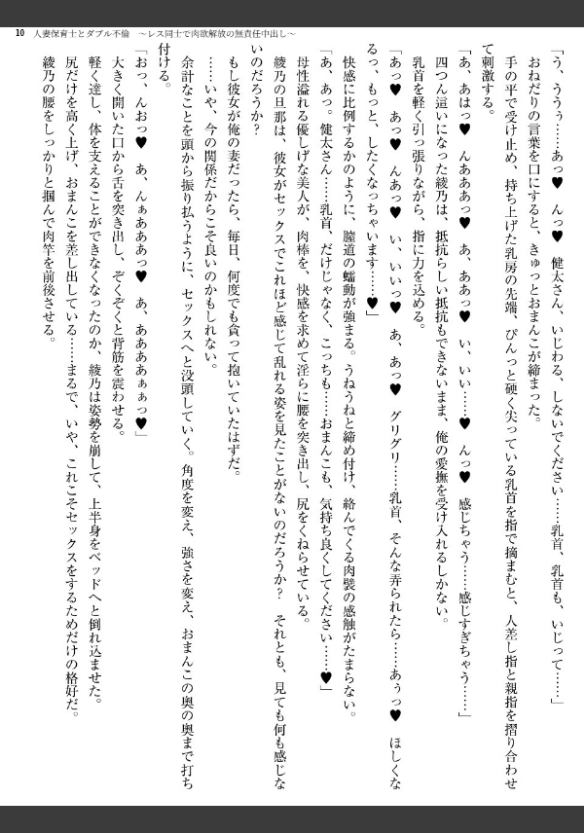 10 人妻保育士とダブル不倫　～レス同士で肉欲解放の無責任中出し～
「う、ううぅ……あっ♥　んっ♥　健太さん、いじわる、しないでください……乳首、乳首も、いじって……」
おねだりの言葉を口にすると、きゅっとおまんこが締まった。
手の平で受け止め、持ち上げた乳房の先端、ぴんっと硬く尖っている乳首を指で摘まむと、人差し指と親指を摺り合わせ
て刺激する。
「あ、あはっ♥　んああぁっ♥　あ、ああっ♥　い、いい……♥　んっ♥　感じちゃう……感じすぎちゃう……」
四つん這いになった綾乃は、抵抗らしい抵抗もできないまま、俺の愛撫を受け入れるしかない。
乳首を軽く引っ張りながら、指に力を込める。
「あっ♥　あっ♥　んあっ♥　い、いいっ♥　あ、あっ♥　グリグリ……乳首、そんな弄られたら……あぅっ♥　ほしくな
るっ、もっと、したくなっちゃいます……♥」
快感に比例するかのように、膣道の蠕動が強まる。うねうねと締め付け、絡んでくる肉襞の感触がたまらない。
「あ、あっ。健太さん……乳首、だけじゃなく、こっちも……おまんこも、気持ち良くしてください……♥」
母性溢れる優しげな美人が、肉棒を、快感を求めて淫らに腰を突き出し、尻をくねらせている。
綾乃の旦那は、彼女がセックスでこれほど感じて乱れる姿を見たことがないのだろうか？　それとも、見ても何も感じな
いのだろうか？
もし彼女が俺の妻だったら、毎日、何度でも貪って抱いていたはずだ。
……いや、今の関係だからこそ良いのかもしれない。
余計なことを頭から振り払うように、セックスへと没頭していく。角度を変え、強さを変え、おまんこの奥の奥まで打ち
付ける。
「おっ、んおっ♥　あ、んぁああぁっ♥　あ、ああああぁぁっ♥」
大きく開いた口から舌を突き出し、ぞくぞくと背筋を震わせる。
軽く達し、体を支えることができなくなったのか、綾乃は姿勢を崩して、上半身をベッドへと倒れ込ませた。
尻だけを高く上げ、おまんこを差し出している……まるで、いや、これこそセックスをするためだけの格好だ。
綾乃の腰をしっかりと掴んで肉竿を前後させる。